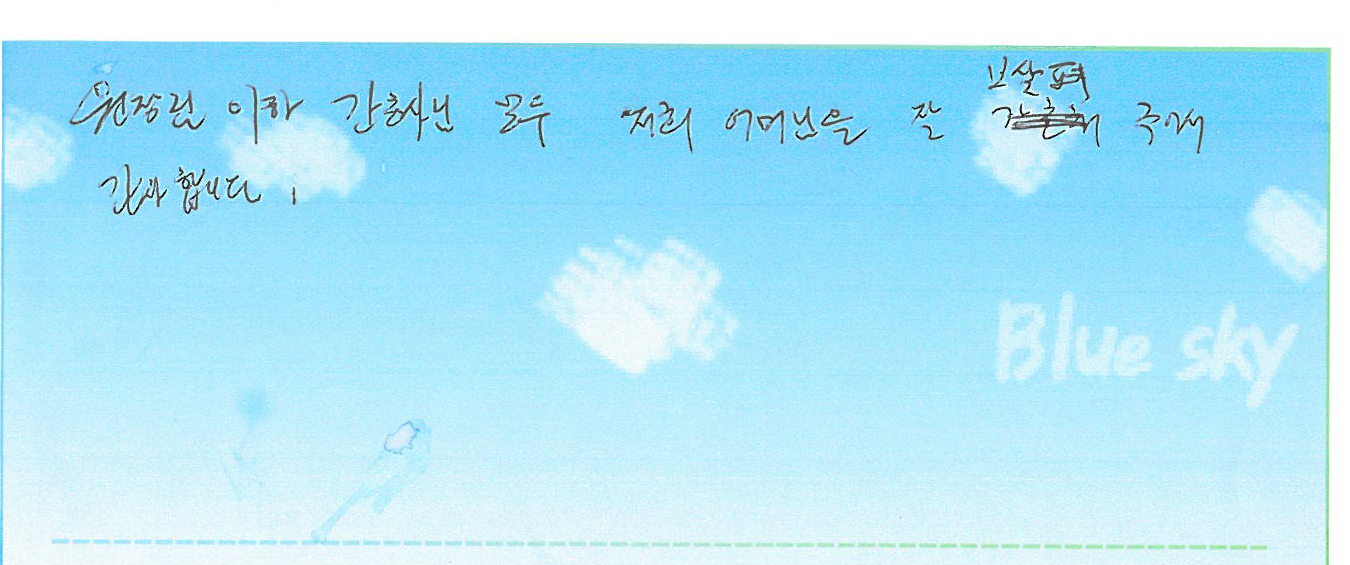 원장님 이하 간호사님 모두 저희 어머님을 잘 보살펴 주셔서
감사합니다!
Blue sky